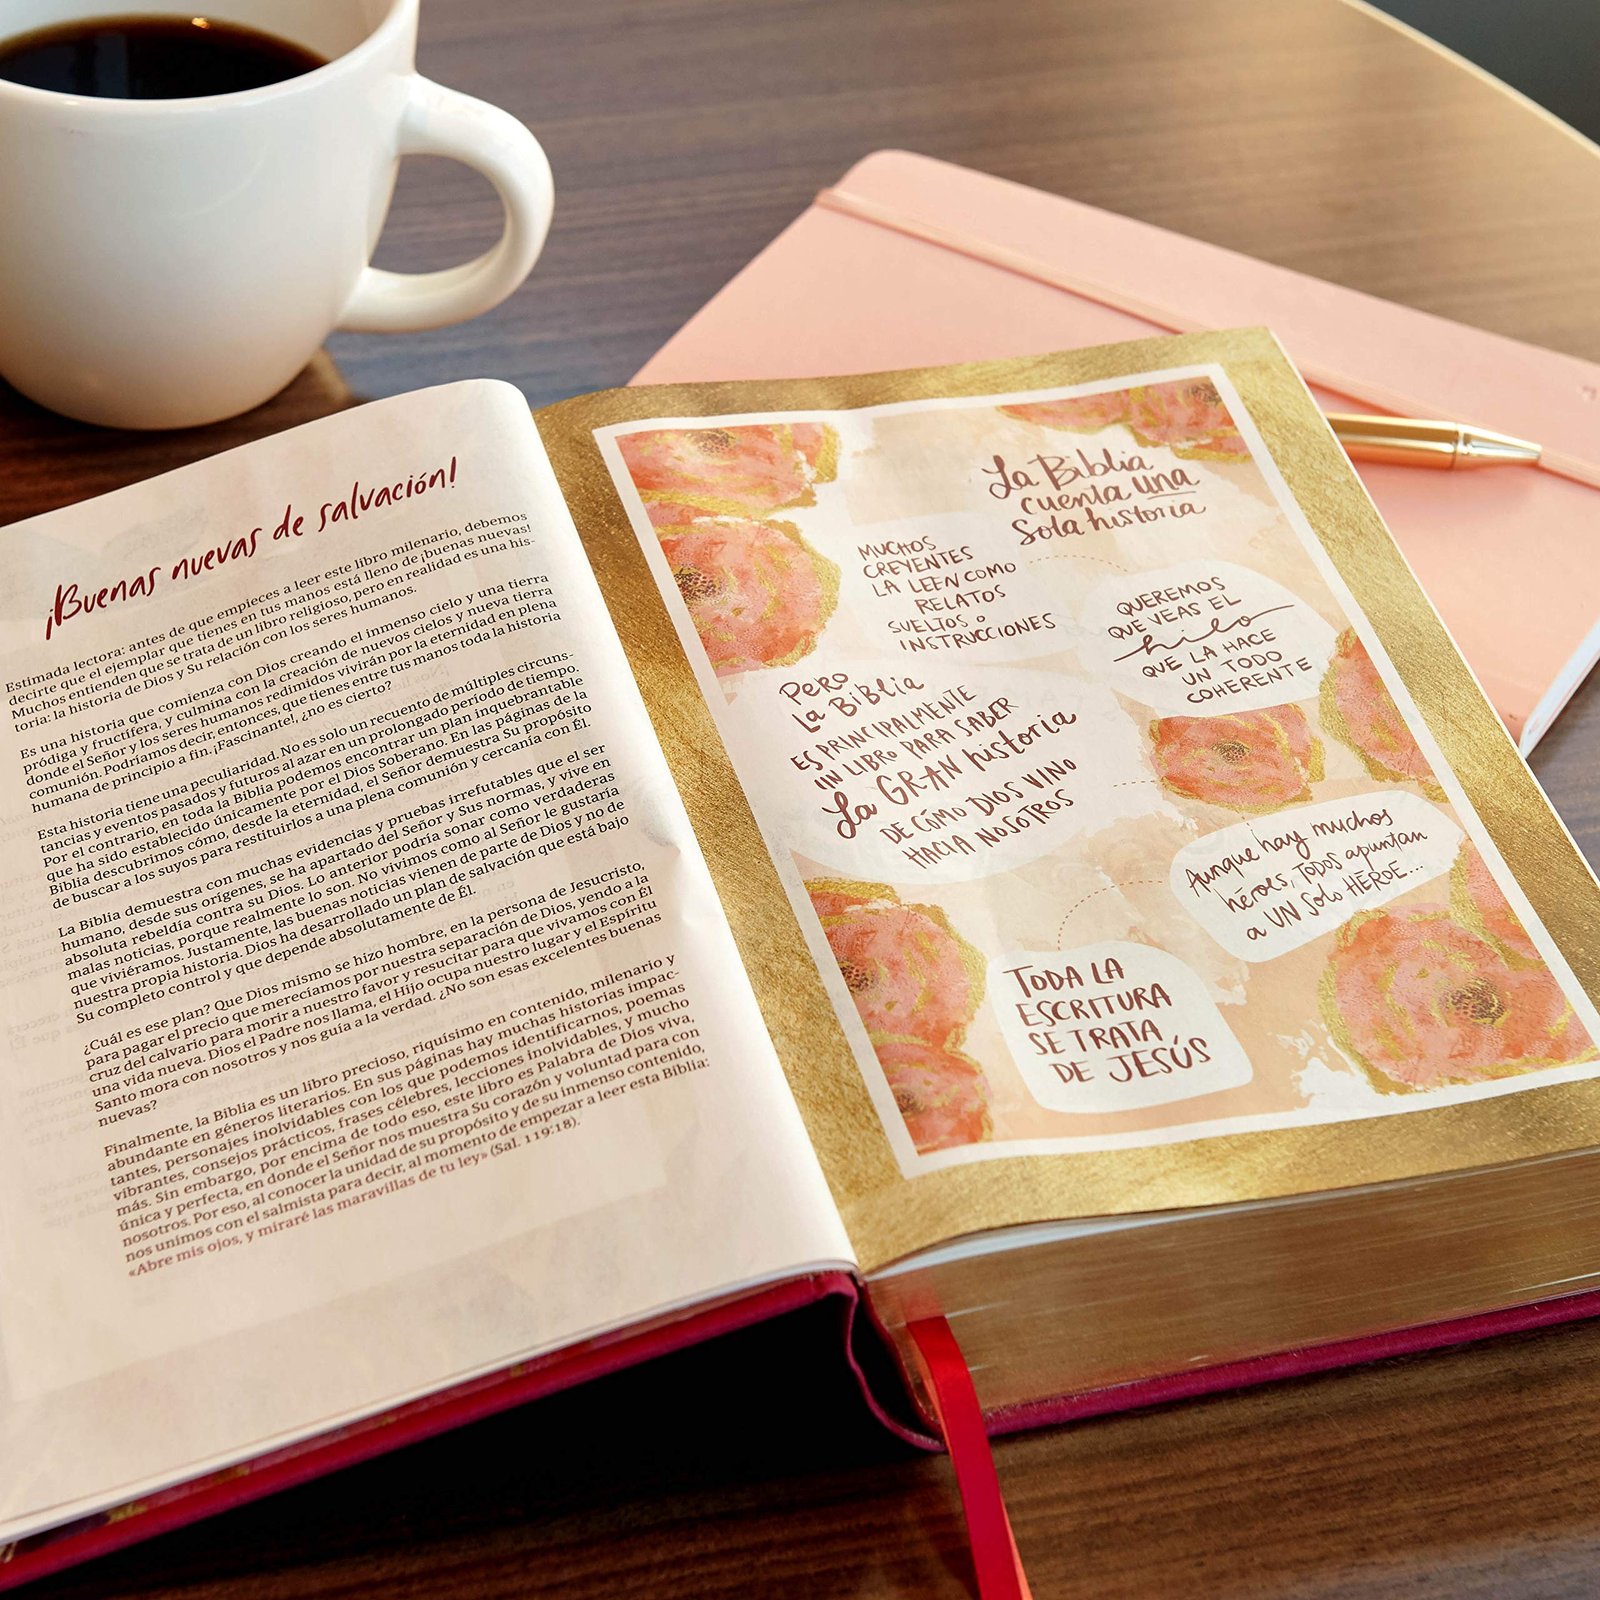 ¡Buenas nuevas de salvación!
Estimada lectora: antes de que empieces a leer este libro milenario, debemos
decirte que el ejemplar que tienes en tus manos está lleno de ¡buenas nuevas!
Muchos entienden que se trata de un libro religioso, pero en realidad es una his-
toria: la historia de Dios y Su relación con los seres humanos.
Es una historia que comienza con Dios creando el inmenso cielo y una tierra
pródiga y fructífera, y culmina con la creación de nuevos cielos y nueva tierra
donde el Señor y los seres humanos redimidos vivirán por la eternidad en plena
comunión. Podríamos decir, entonces, que tienes entre tus manos toda la historia
humana de principio a fin. ¡Fascinante!, ¿no es cierto?
Esta historia tiene una peculiaridad. No es solo un recuento de múltiples circuns-
tancias y eventos pasados y futuros al azar en un prolongado período de tiempo.
Por el contrario, en toda la Biblia podemos encontrar un plan inquebrantable
que ha sido establecido únicamente por el Dios Soberano. En las páginas de la
Biblia descubrimos cómo, desde la eternidad, el Señor demuestra Su propósito
de buscar a los suyos para restituirlos a una plena comunión y cercanía con Él.
La Biblia demuestra con muchas evidencias y pruebas irrefutables que el ser
humano, desde sus orígenes, se ha apartado del Señor y Sus normas, y vive en
absoluta rebeldía contra su Dios. Lo anterior podría sonar como verdaderas
malas noticias, porque realmente lo son. No vivimos como al Señor le gustaría
que viviéramos. Justamente, las buenas noticias vienen de parte de Dios y no de
nuestra propia historia. Dios ha desarrollado un plan de salvación que está bajo
Su completo control y que depende absolutamente de Él.
¿Cuál es ese plan? Que Dios mismo se hizo hombre, en la persona de Jesucristo,
para pagar el precio que merecíamos por nuestra separación de Dios, yendo a la
cruz del calvario para morir a nuestro favor y resucitar para que vivamos con Él
una vida nueva. Dios el Padre nos llama, el Hijo ocupa nuestro lugar y el Espíritu
Santo mora con nosotros y nos guía a la verdad. ¿No son esas excelentes buenas
nuevas?
Finalmente, la Biblia es un libro precioso, riquísimo en contenido, milenario y
abundante en géneros literarios. En sus páginas hay muchas historias impac-
tantes, personajes inolvidables con los que podemos identificarnos, poemas
vibrantes, consejos prácticos, frases célebres, lecciones inolvidables, y mucho
más. Sin embargo, por encima de todo eso, este libro es Palabra de Dios viva,
única y perfecta, en donde el Señor nos muestra Su corazón y voluntad para con
nosotros. Por eso, al conocer la unidad de su propósito y de su inmenso contenido,
nos unimos con el salmista para decir, al momento de empezar a leer esta Biblia:
«Abre mis ojos, y miraré las maravillas de tu ley» (Sal. 119:18).
La Biblia
cuenta una
Sola historia
MUCHOS
CREYENTES
LA LEEN COMO
RELATOS
SUELTOS o
INSTRUCCIONES
QUEREMOS
QUE VEAS EL
hilo
QUE LA HACE
UN TODO
COHERENTE
PERO
La BiBLiA
ES PRINCIPALMENTE
UN LIBRO PARA SABER
La GRAN historia
DE CÓMO DIOS VINO
HACIA NOSOTROS
Aunque hay muchos
héroes, TODOS apuntan
a UN Solo HÉROE...
TODA LA
ESCRITURA
SE TRATA
DE JESÚS